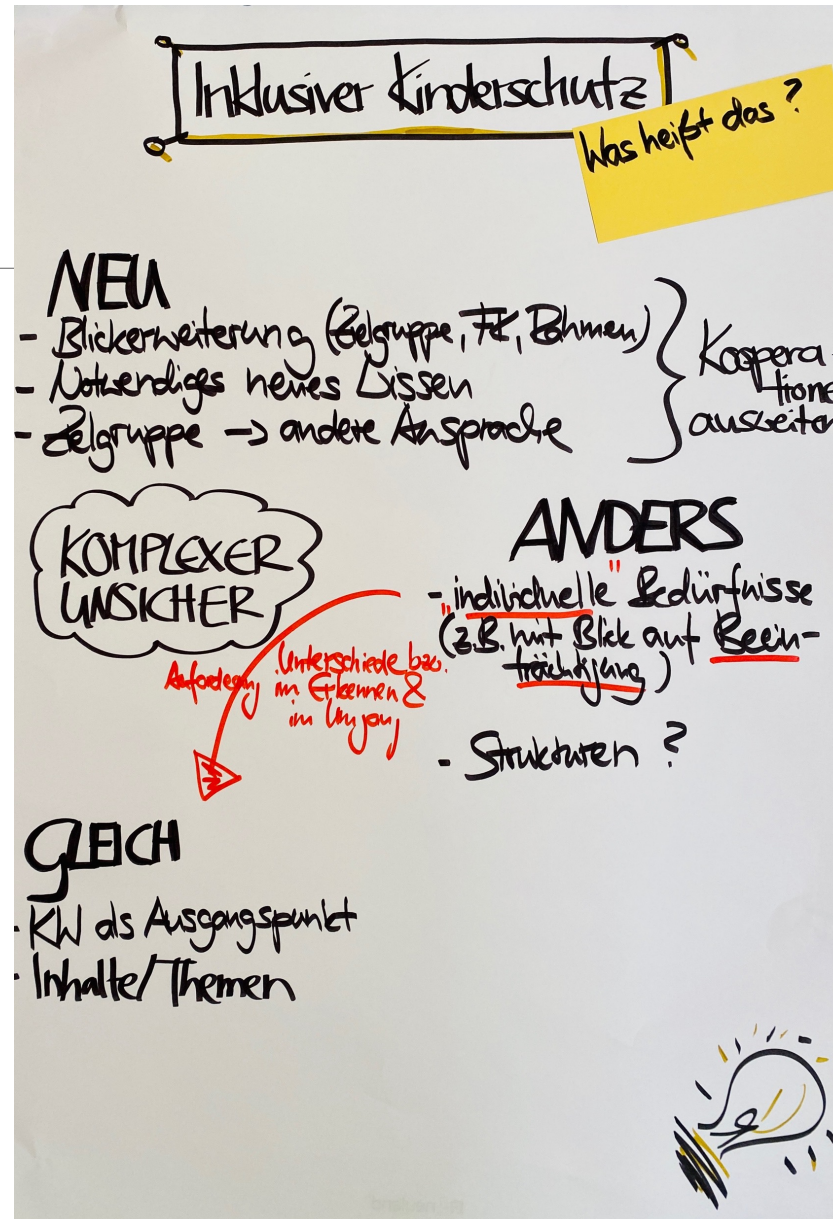 Inklusiver Kinderschutz
Was heißt das?
NEU
- Blickerweiterung (Zielgruppe, FK, Rahmen)
- Notwendiges neues Wissen
- Zielgruppe -> andere Ansprache
Koopera-
tione
ausweiten
KOMPLEXER
UNSICHER
ANDERS
- "individuelle" Bedürfnisse
(z.B. mit Blick auf Beein-
trächtigung)
- Strukturen ?
Anforderung
Unterschiede bzw.
im Erkennen &
im Umgang
GLEICH
- KW als Ausgangspunkt
- Inhalte/Themen